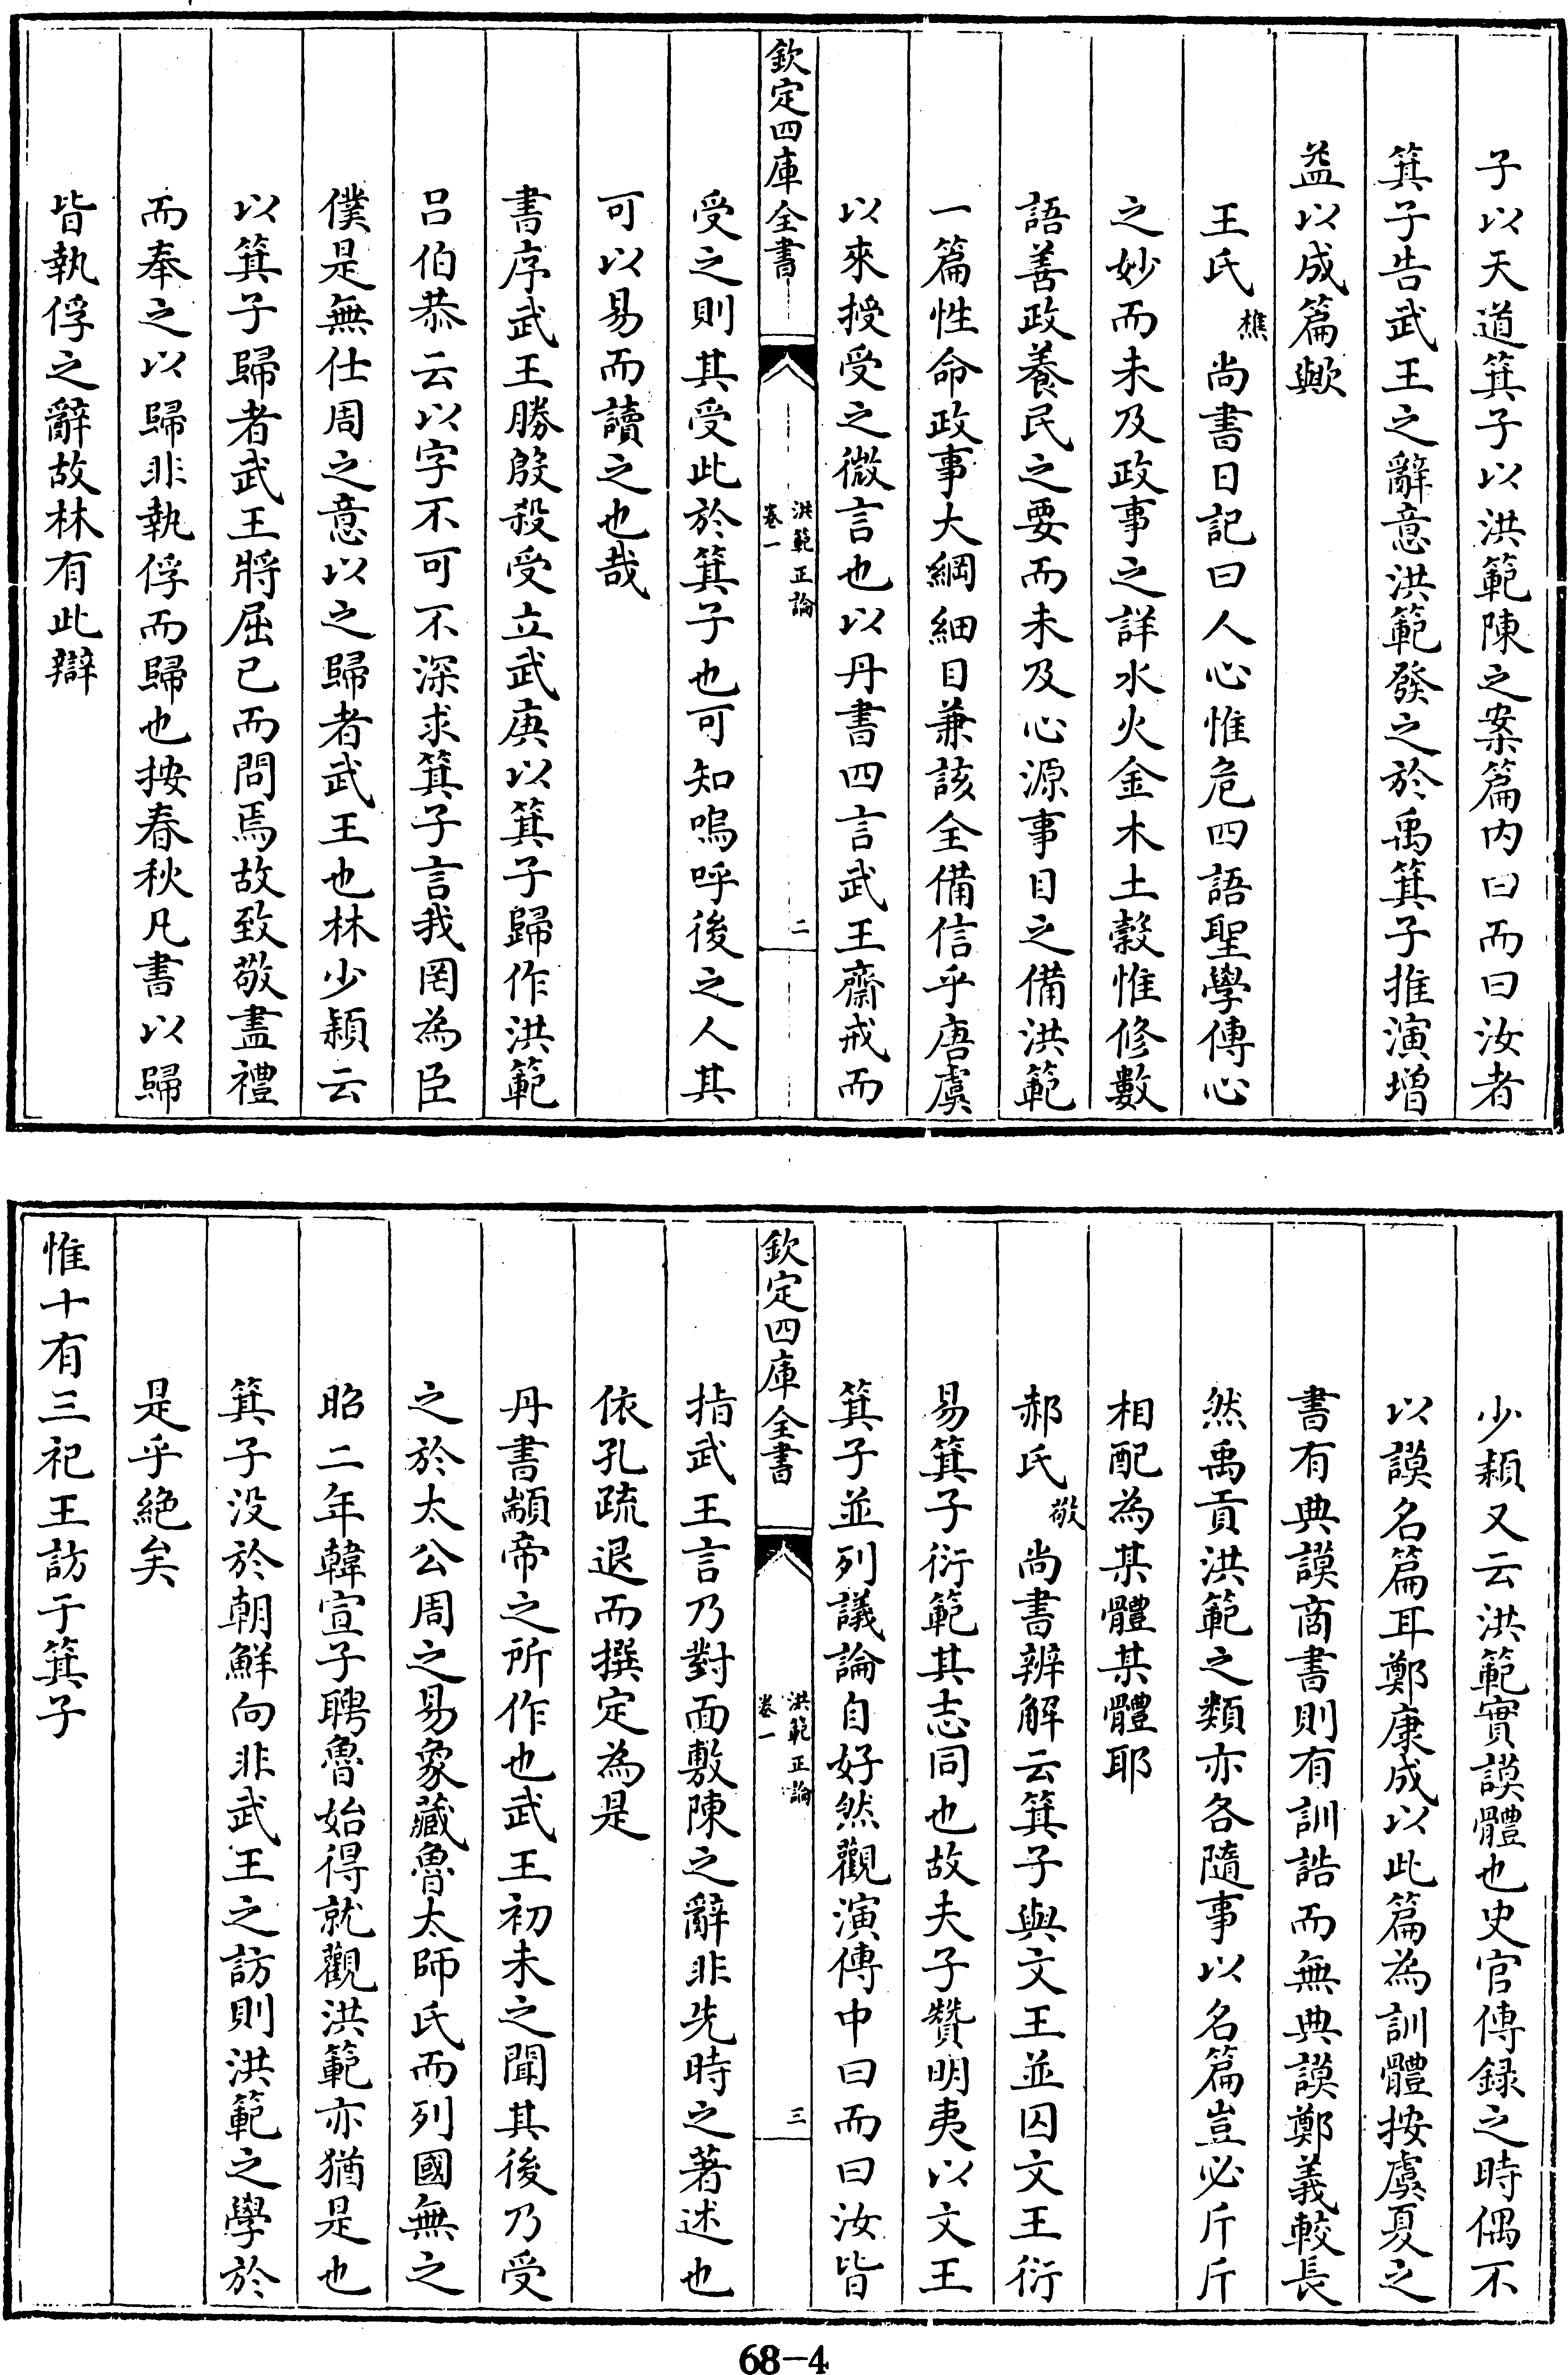 子以天道箕子以洪範陳之案篇内曰而曰汝者
箕子告武王之辭意洪範發之於禹箕子推演增
益以成篇歟
王氏樵尚書日記曰人心惟危四語聖學傳心
之妙而未及政事之詳水火金木土穀惟修數
語善政養民之要而未及心源事目之備洪範
一篇性命政事大綱細目兼該全備信乎唐虞
以來授受之微言也以丹書四言武王齋戒而
欽定四庫全書
洪範正論
卷一
二
受之則其受此於箕子也可知嗚呼後之人其
可以易而讀之也哉
書序武王勝殷殺受立武庚以箕子歸作洪範
呂伯恭云以字不可不深求箕子言我罔為臣
僕是無仕周之意以之歸者武王也林少穎云
以箕子歸者武王將屈已而問焉故致敬盡禮
而奉之以歸非執俘而歸也按春秋凡書以歸
皆執俘之辭故林有此辯
少穎又云洪範實謨體也史官傳録之時偶不
以謨名篇耳鄭康成以此篇為訓體按虞夏之
書有典謨商書則有訓誥而無典謨鄭義較長
然禹貢洪範之類亦各隨事以名篇豈必斤斤
相配為某體某體耶
郝氏敬尚書辨解云箕子與文王並囚文王衍
易箕子衍範其志同也故夫子贊明夷以文王
箕子並列議論自好然觀演傳中曰而曰汝皆
欽定四庫全書
洪範正論
卷一
三
指武王言乃對面敷陳之辭非先時之著述也
依孔疏退而撰定為是
丹書顓帝之所作也武王初未之聞其後乃受
之於太公周之易象藏魯太師氏而列國無之
昭二年韓宣子聘魯始得就觀洪範亦猶是也
箕子没於朝鮮向非武王之訪則洪範之學於
是乎絶矣
惟十有三祀王訪于箕子
68-4